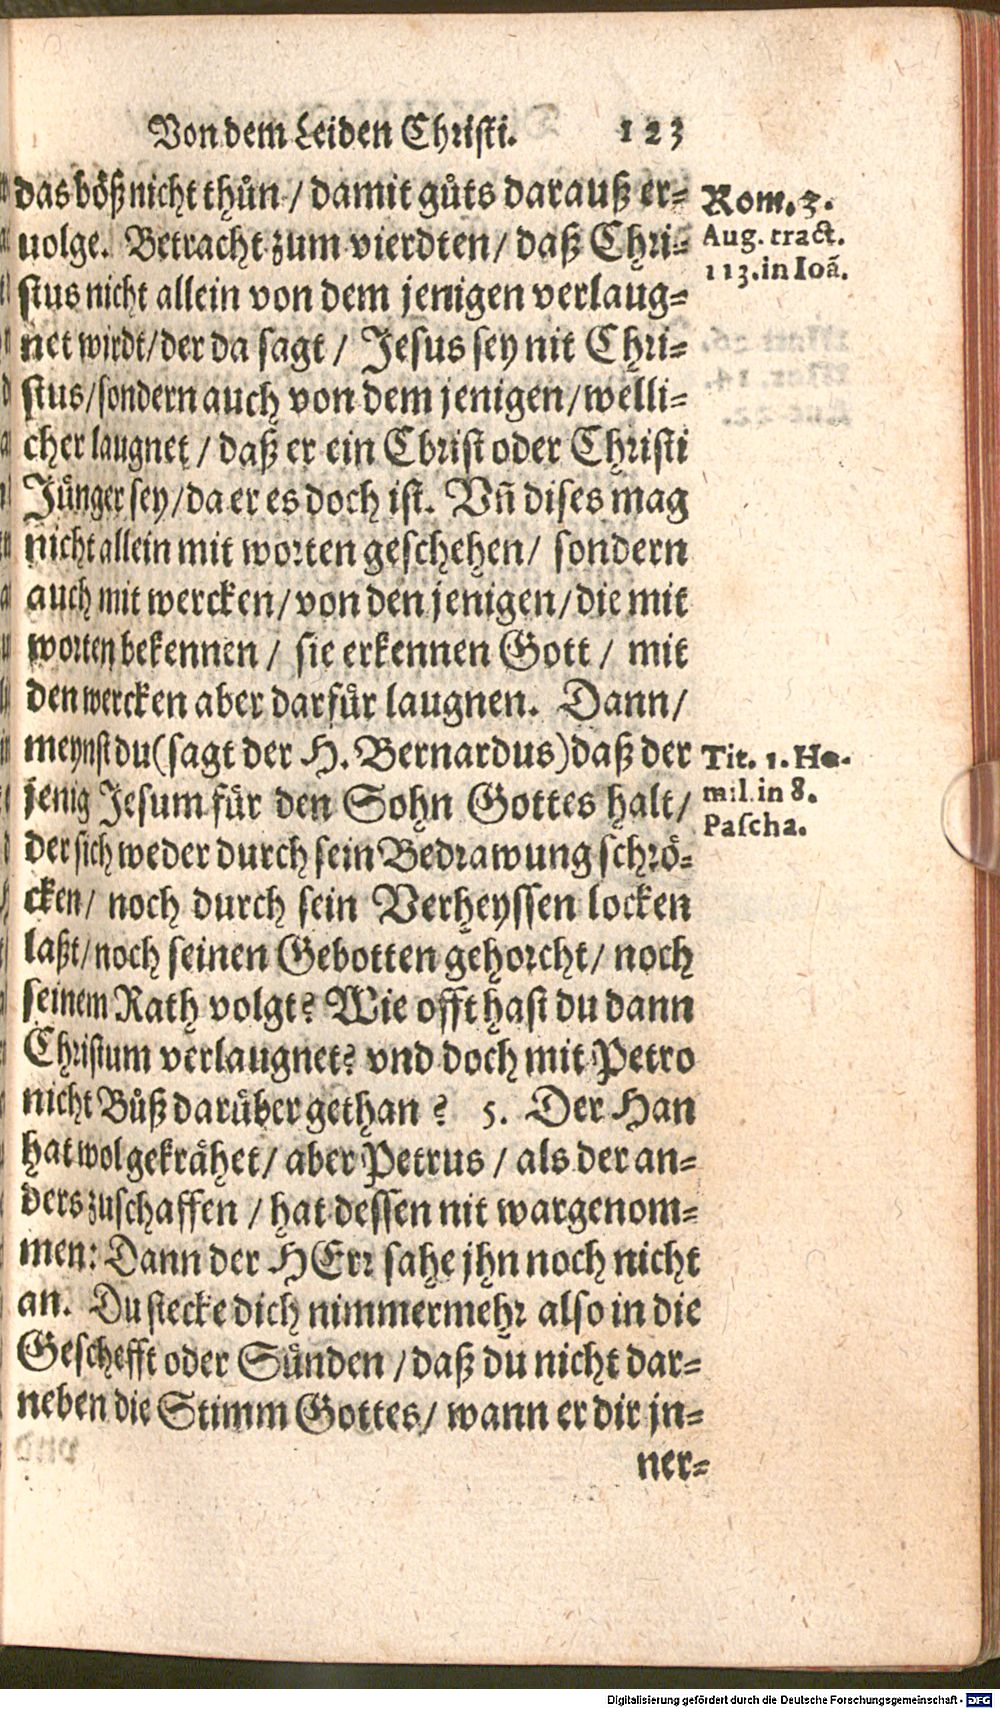 Von dem Leiden Christi. 123
das böß nicht thůn / damit gůts darauß er-
uolge. Betracht zum vierdten / daß Chri-
stus nicht allein von dem jenigen verlaug-
net wirdt / der da sagt / Jesus sey nit Chri-
stus / sondern auch von dem jenigen / welli-
cher laugnet / daß er ein Christ oder Christi
Jünger sey / da er es doch ist. Vñ dises mag
nicht allein mit worten geschehen / sondern
auch mit wercken / von den jenigen / die mit
worten bekennen / sie erkennen Gott / mit
den wercken aber darfür laugnen. Dann /
meynst du (sagt der H. Bernardus) daß der
jenig Jesum für den Sohn Gottes halt /
der sich weder durch sein Bedrawung schrö-
cken / noch durch sein Verheyssen locken
laßt / noch seinen Gebotten gehorcht / noch
seinem Rath volgt? Wie offt hast du dann
Christum verlaugnet? vnd doch mit Petro
nicht Bůß darüber gethan? 5. Der Han
hat wol gekrähet / aber Petrus / als der an-
ders zuschaffen / hat dessen nit wargenom-
men: Dann der HErr sahe jhn noch nicht
an. Du stecke dich nimmermehr also in die
Geschefft oder Sünden / daß du nicht dar-
neben die Stimm Gottes / wann er dir jn-
ner-
Rom. 3.
Aug. tract.
113. in Ioã.
Tit. 1. Ho-
mil. in 8.
Pascha.
Digitalisierung gefördert durch die Deutsche Forschungsgemeinschaft - DFG